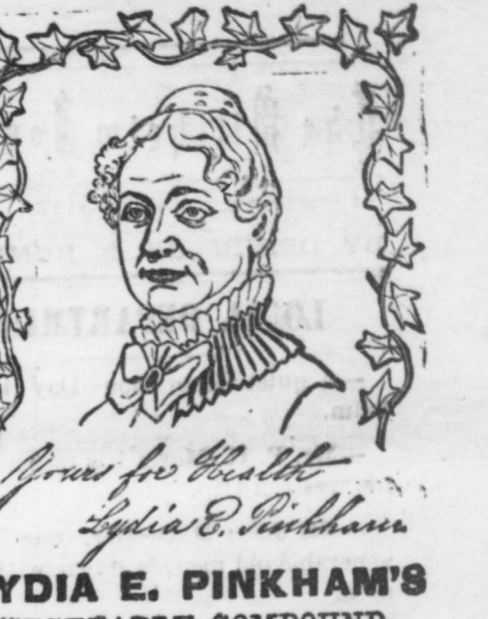 Yours for Health
Lydia E. Pinkham
YDIA E. PINKHAM'S
COMPOUND